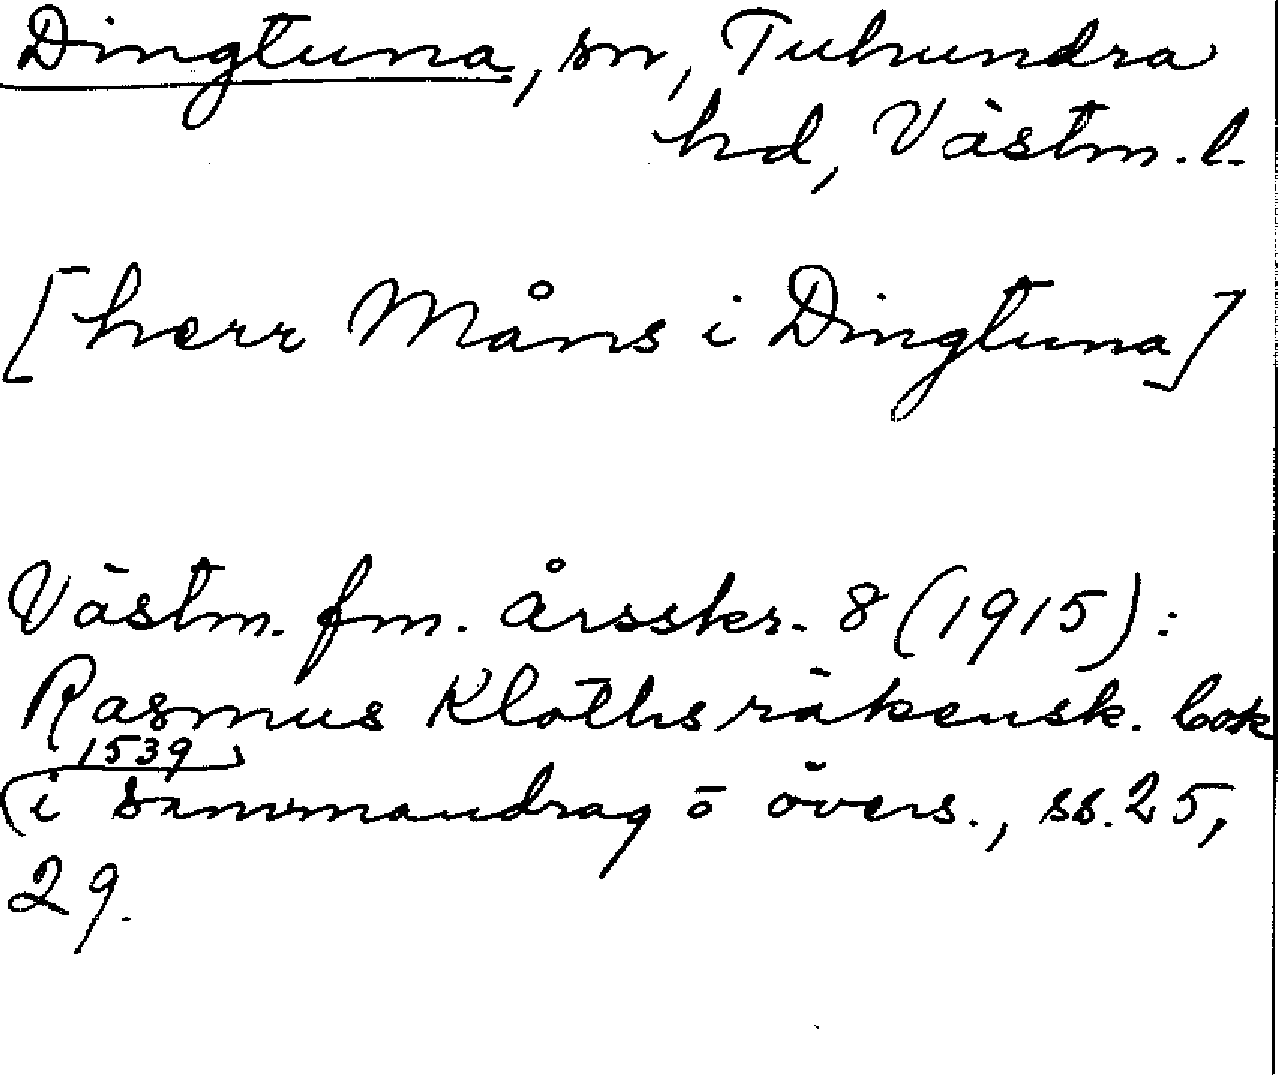 Dingtuna, sn, Tuhundra
hd, Västm. l.
[herr Måns i Dingtuna]
Västm. fm. årsskr. 8 (1915):
Rasmus Kloths räkensk. bok
1539
i sammandrag o övers., ss. 25,
29.